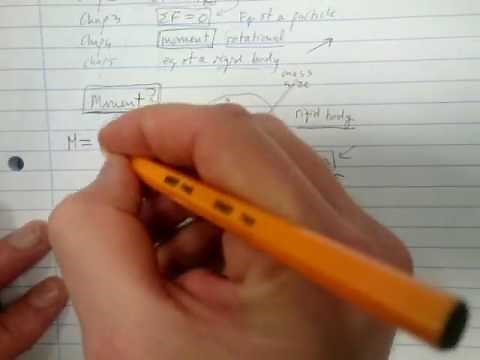 Chap 3 ΣF = 0 Eq of a particle
Chap 4 moment rotational
Chap 5 eq of a rigid body
mass
size
Moment?
rigid body
M =